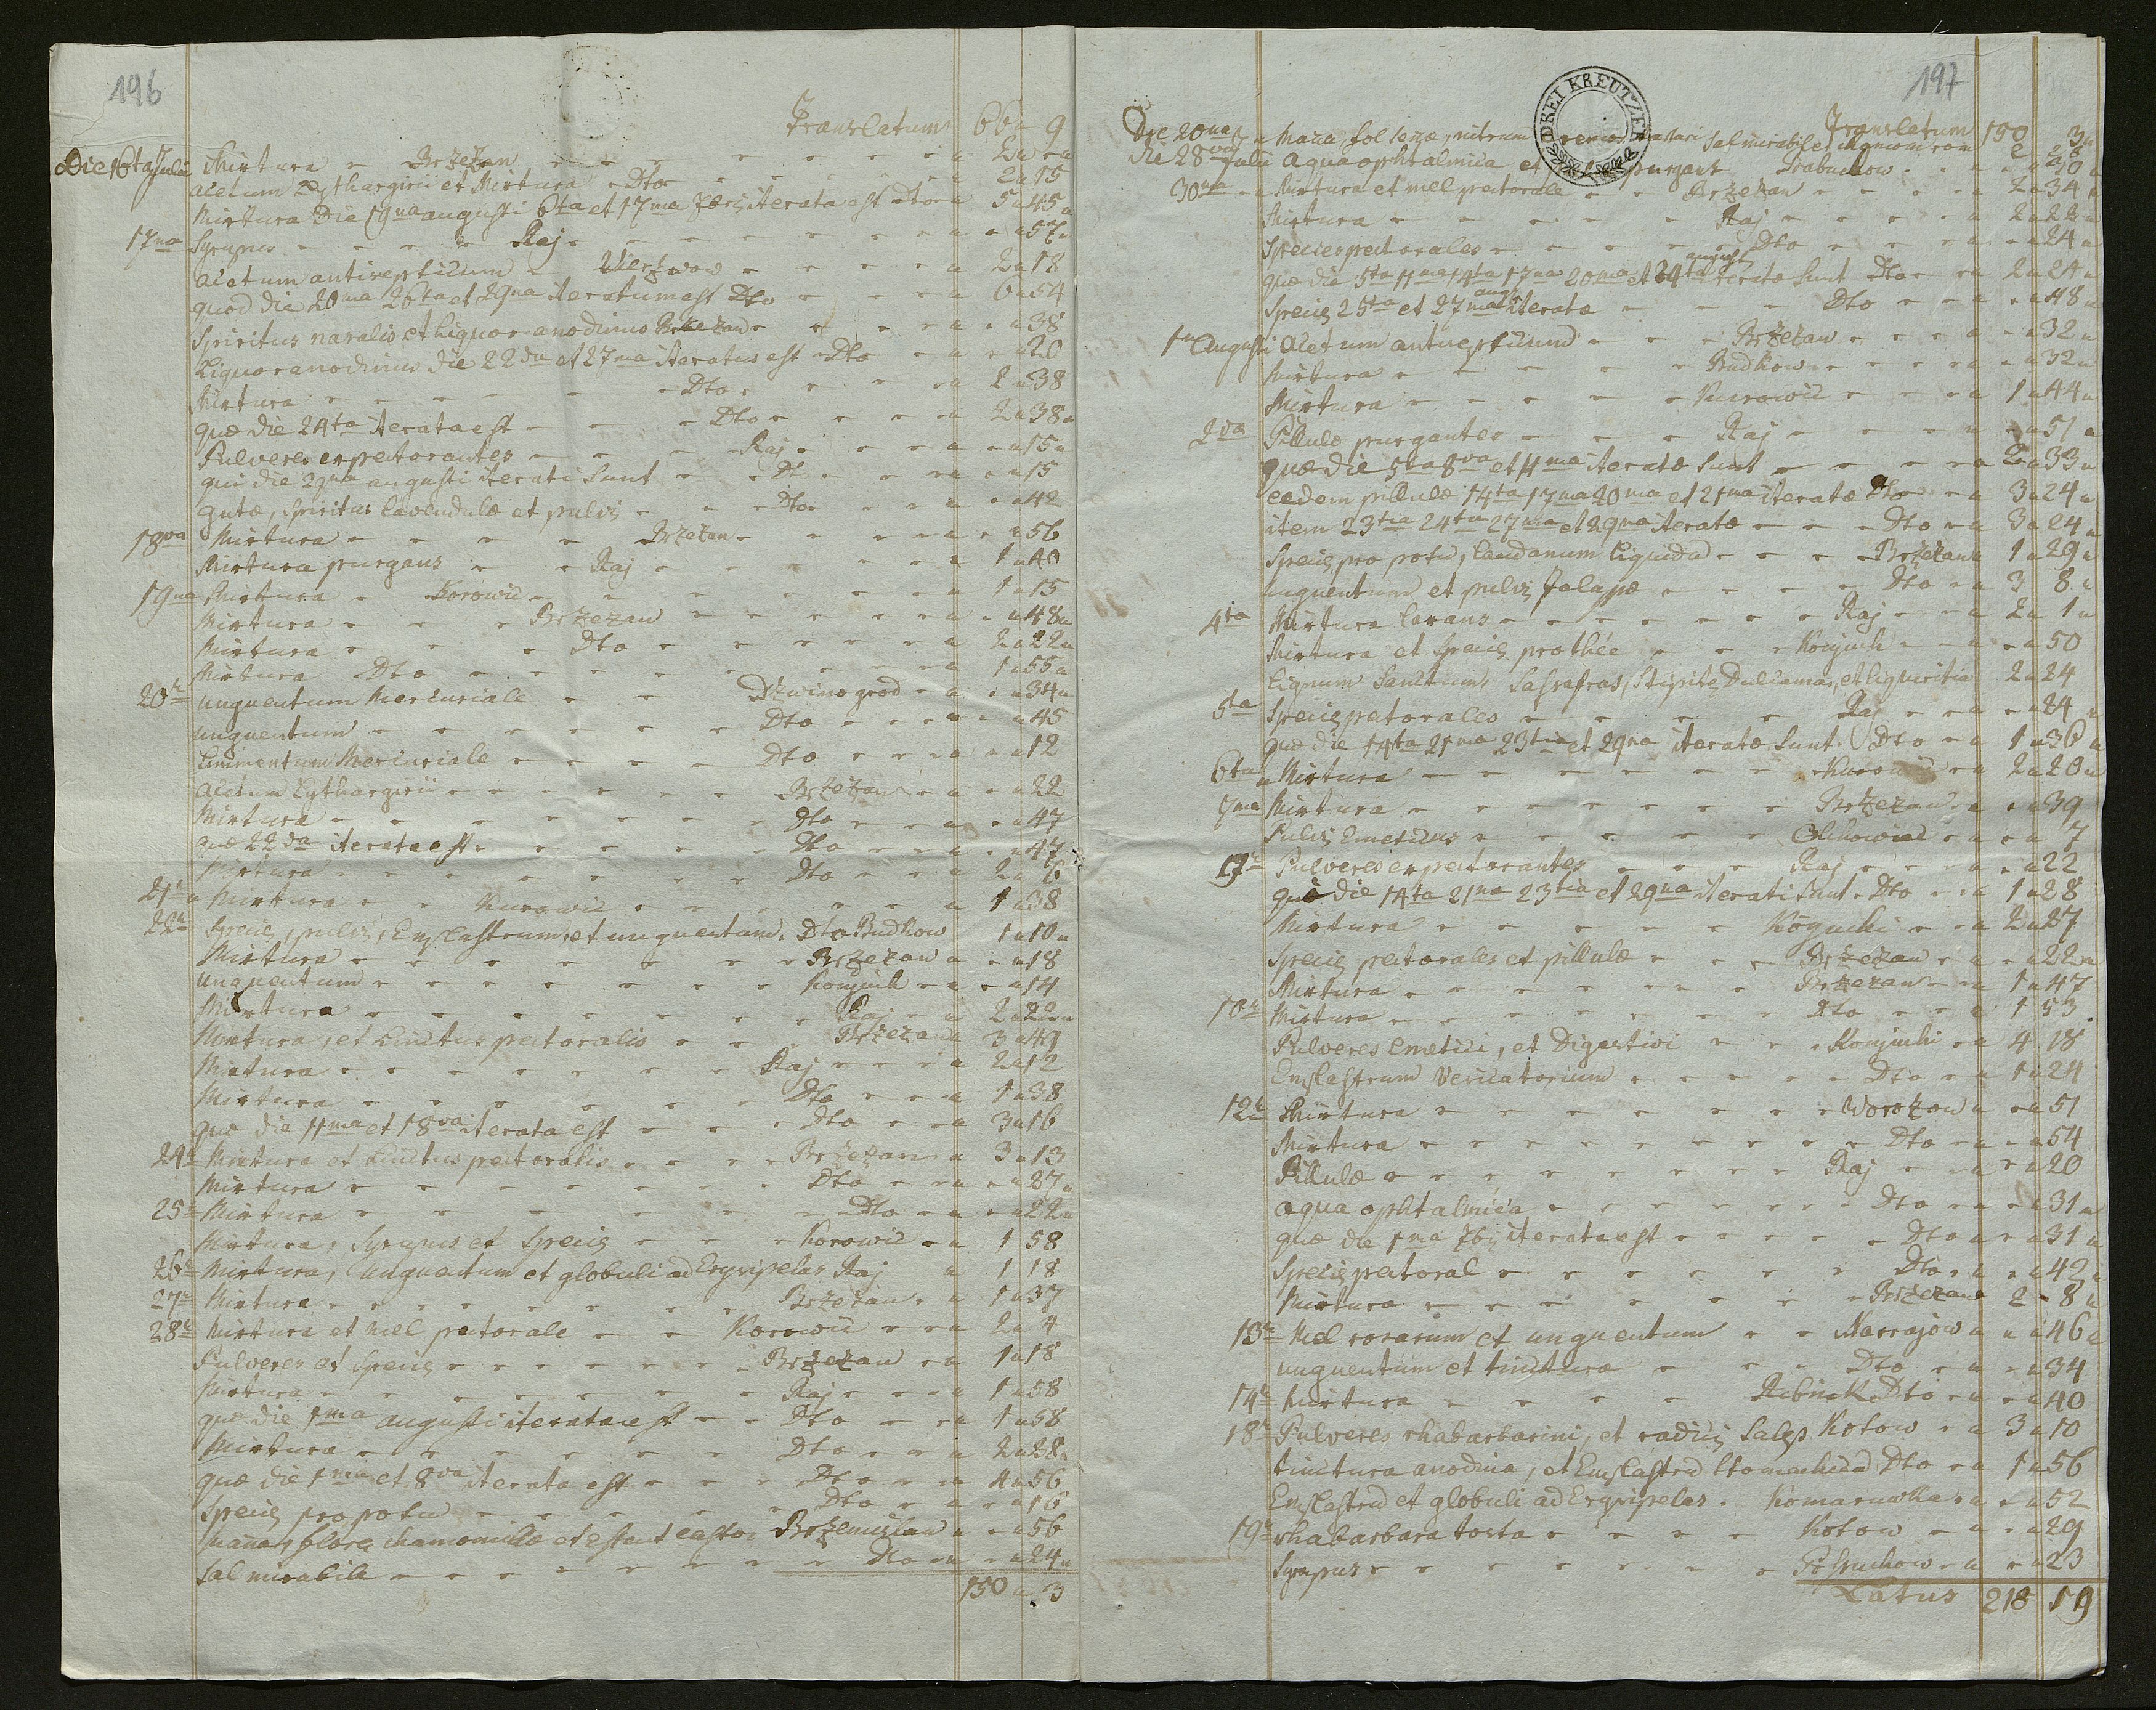 196
Translatum 66 „ 9
Die 16ta Julii Mixtura Brzezan 2 „
acetum Lythargirii et Mixtura Dto 2 „ 15
Mixtura Die 19na augusti 6ta et 17ma 7bris iterata est dto 5 „ 45
17ma Syrupus Raj „ 57
acetum antisepticum 2 „ 18
quod die 20ma 26ta et 29na iteratum est Dto 6 „ 54
Spiritus naralis et liquor anodinus Brzezan „ 38
Liquor anodinus die 22da et 27ma iteratus est Dto „ 20
Mixtura Dto 2 „ 38
quæ die 24ta iterata est Dto 2 „ 38
Pulveres expectorantes Raj „ 15
qui die 29na augusti iterati sunt Dto „ 15
gutæ, Spiritus lavendulæ et pulvis Dto „ 42
18va Mixtura Brzezan „ 56
Mixtura purgans Raj 1 „ 40
19na Mixtura Korowic 1 „ 15
Mixtura Brzezan „ 48
Mixtura Dto 2 „ 22
Mixtura Dto 1 „ 55
20 unguentum Mercuriale Dzwinogrod „ 34
unguentum Dto „ 45
Linimentum Mercuriale Dto „ 12
acetum Lythargirii Brzezan „ 22
Mixtura Dto „ 47
quæ 22da iterata est Dto „ 47
Mixtura Dto 2 „ 6
21 Mixtura Kurowic 1 „ 38
22 Species, pulvis, Emplastrum, et unguentum Dto Budkow 1 „ 10
Mixtura Brzezan „ 18
unguentum Konjuch „ 14
Mixtura Raj 2 „ 22
Mixtura, et Linctus pectoralis Brzezan 3 „ 49
Mixtura Raj 2 „ 12
Mixtura Dto 1 „ 38
quæ die 11ma et 18va iterata est Dto 3 „ 16
24 Mixtura et Linctus pectoralis Brzezan 3 „ 13
Mixtura Dto „ 27
25 Mixtura Dto „ 22
Mixtura, Syrupus et Species Korowic 1 58
26 Mixtura, Unguentum et globuli ad Erysipelas Raj 1 18
27 Mixtura Brzezan 1 „ 37
28 Mixtura et mel pectorale Korowic 2 „ 4
Pulveres et Species Brzezan 1 „ 18
Mixtura Raj 1 „ 58
quæ die 1ma augusti iterata est Dto 1 „ 58
Mixtura Dto 2 „ 28
quæ die 1ma et 8va iterata est Dto 4 „ 56
Species pro potu Dto „ 16
Manna, flores chamomillæ et essent castor Brzemislan „ 56
Sal mirabile Dto „ 24
150 „ 3
197
DREI KREUTZER
Translatum 150 3
Die 20ma Mana, fol senæ, nitrum Sal mirabile et
die 28va Julii aqua ophtalmica et purgans
30ma Mixtura et mel pectorale Brzezan 2 „ 34
Mixtura Raj 2 „ 22
Species pectorales Dto „ 24
quæ die 5ta 11ma 14ta 17ma 20ma et 24ta augusti iteratæ sunt Dto 2 „ 24
Species 25ta et 27ma aug. iteratæ Dto „ 48
1ma Augusti acetum antisepticum Brzezan „ 32
Mixtura Budkow „ 32
Mixtura Kurowic 1 „ 44
2da Pillulæ purgantes Raj „ 51
quæ die 5ta 8va et 11ma iteratæ sunt 2 „ 33
eædem pillulæ 14ta 17ma 20ma et 21ma iteratæ Dto 3 „ 24
item 23tia 24ta 27ma et 29na iteratæ Dto 3 „ 24
Species pro potu, laudanum liquidu Brzezan 1 „ 29
unguentum et pulvis Jalappæ Dto 3 8
4ta Mixtura laxans Raj 2 „ 1
Mixtura et Species pro thée Konjuch „ 50
Lignum Sanctum, Sassafras, Stipites Dulcamar, et liquiritia 2 „ 24
5ta Species pectorales Raj „ 24
quæ die 14ta 21ma 23tia et 29na iteratæ sunt Dto 1 „ 36
6ta Mixtura Kurowic 2 „ 20
7ma Mixtura Brzezan „ 39
Pulvis Emeticus „ 7
9 Pulveres expectorantes Raj „ 22
qui die 14ta 21ma 23tia et 29na iterati sunt Dto 1 „ 28
Mixtura 2 „ 27
Species pectorales et pillulæ Brzezan „ 22
Mixtura Brzezan 1 „ 47
10 Mixtura Dto 1 53
Pulveres Emetici, et Digestivi Konjuchi 4 18
Emplastrum Vesicatorium Dto 1 „ 24
12 Mixtura Worozow „ 51
Mixtura Dto „ 54
Pillulæ Raj „ 20
aqua ophtalmica Dto „ 31
quæ die 1ma 7bris iterata est Dto „ 31
Species pectoral Dto „ 42
Mixtura Brzezan 2 „ 8
13 Mel rosarum et unguentum Narrajow „ 46
unguentum et tinctura Dto „ 34
14 Mixtura Ribnik Dto „ 40
18 Pulveres rhabarbarini, et radicis Salep Kotow 3 „ 10
tinctura anodina, et Emplastrū Stomachicū Dto 1 „ 56
Emplastrū et globuli ad Erysipelas. Komarowka „ 52
19 rhabarbara tosta Kotow „ 29
Syrupus „ 23
Latus 218 19